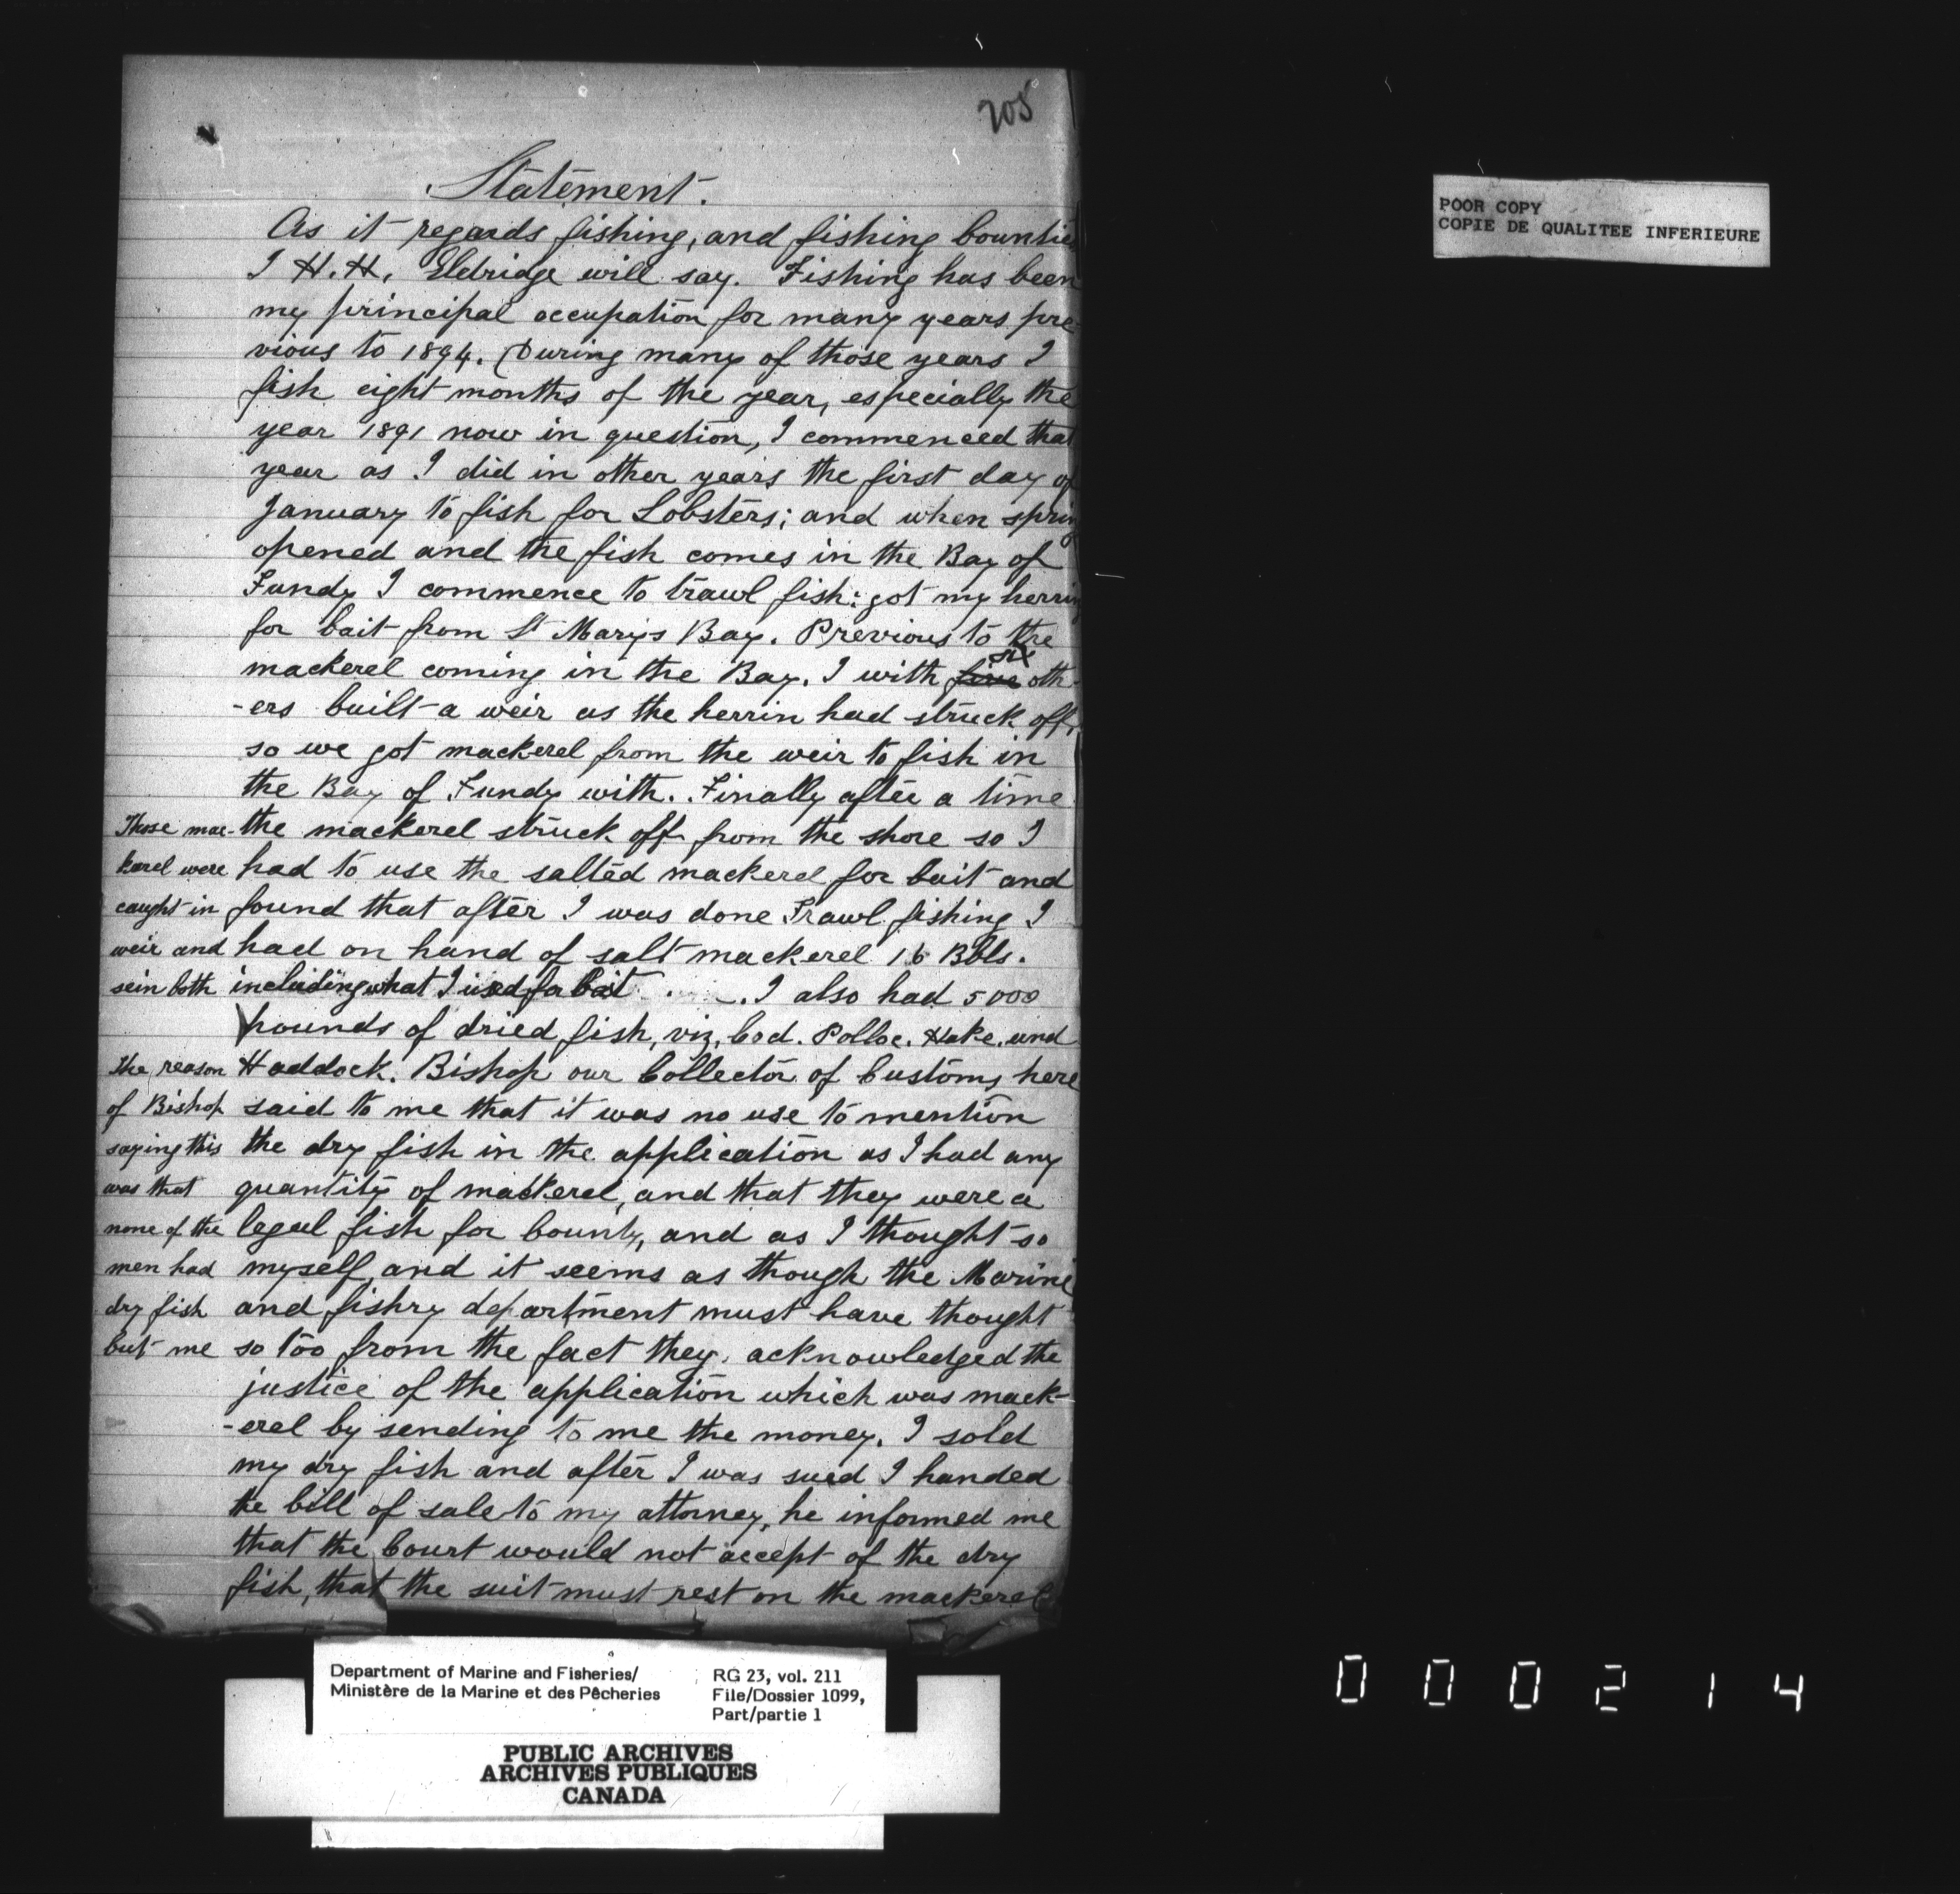 205
Statement.
As it regards fishing, and fishing bountie
I H. H. Eldridge will say. Fishing has been
my principal occupation for many years pre-
vious to 1894. During many of those years I
fish eight months of the year, especially the
year 1891 now in question, I commenced that
year as I did in other years the first day of
January to fish for Lobsters; and when sprin
opened and the fish comes in the Bay of
Fundy I commence to trawl fish: got my herrin
for bait from St Marys Bay. Previous to the
mackerel coming in the Bay. I with five six oth-
-ers built a weir as the herrin had struck off,
so we got mackerel from the weir to fish in
the Bay of Fundy with. Finally after a time
the mackerel struck off from the shore so I
had to use the salted mackerel for bait and
found that after I was done Trawl fishing I
had on hand of salt mackerel 16 Bbls.
including what I used for bait. I also had 5000
pounds of dried fish, viz, Cod. Polloc. Hake. and
Haddock. Bishop our Collector of Customs here
said to me that it was no use to mention
the dry fish in the application as I had any
quantity of mackerel, and that they were a
legal fish for bounty, and as I thought so
myself, and it seems as though the Marine
and fishry department must have thought
so too from the fact they, acknowledged the
justice of the application which was mack-
-erel by sending to me the money. I sold
my dry fish and after I was sued I handed
the bill of sale to my attorney, he informed me
that the Court would not accept of the dry
fish, that the suit must rest on the mackerel
Those mac-
kerel were
caught in
weir and
sein both
The reason
of Bishop
saying this
was that
none of the
men had
dry fish
but me
POOR COPY
COPIE DE QUALITEE INFERIEURE
Department of Marine and Fisheries/
Ministère de la Marine et des Pêcheries
RG 23, vol. 211
File/Dossier 1099,
Part/partie 1
PUBLIC ARCHIVES
ARCHIVES PUBLIQUES
CANADA
000214